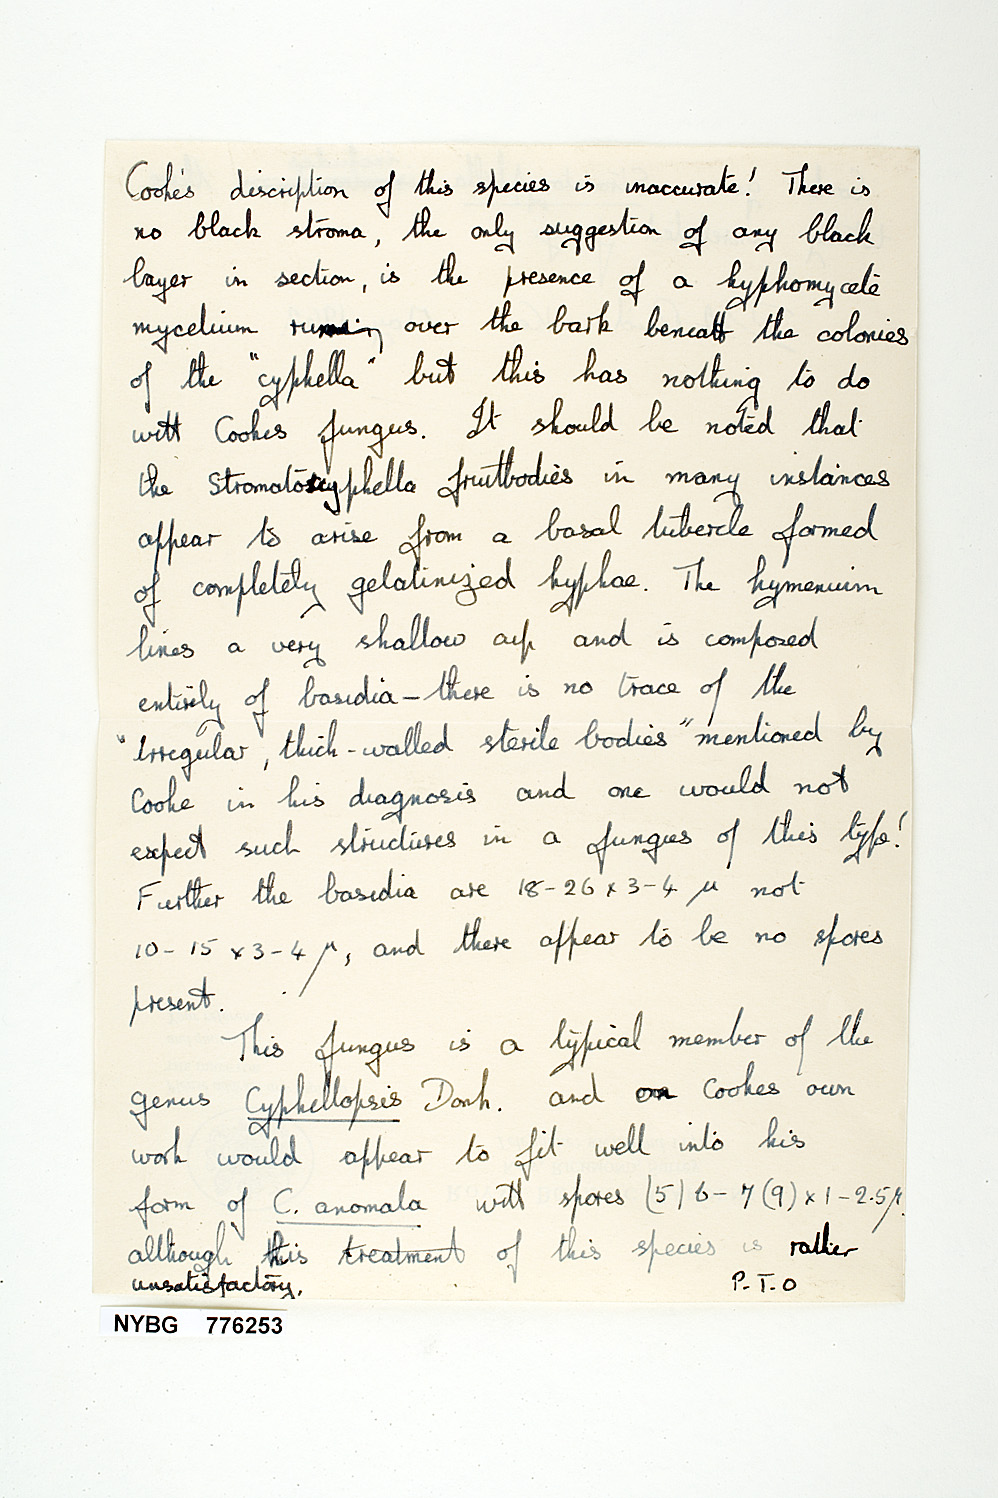 Cooke's discription of this species is inaccurate! There is
no black stroma, the only suggestion of any black
layer in section, is the presence of a hyphomycete
mycelium running over the bark beneath the colonies
of the "cyphella" but this has nothing to do
with Cookes fungus. It should be noted that
the Stromatoscyphella fruitbodies in many instances
appear to arise from a basal tubercle formed
of completely gelatinized hyphae. The hymenium
lines a very shallow cup and is composed
entirely of basidia — there is no trace of the
"Irregular, thick-walled sterile bodies" mentioned by
Cooke in his diagnosis and one would not
expect such structures in a fungus of this type!
Further the basidia are 18-26 x 3-4 µ not
10-15 x 3-4 µ, and there appear to be no spores
present.
This fungus is a typical member of the
genus Cyphellopsis Donk. and on Cookes own
work would appear to fit well into his
form of C. anomala with spores (5) 6-7 (9) x 1-2.5µ.
although this treatment of this species is rather
unsatisfactory.
P.T.O
NYBG 776253